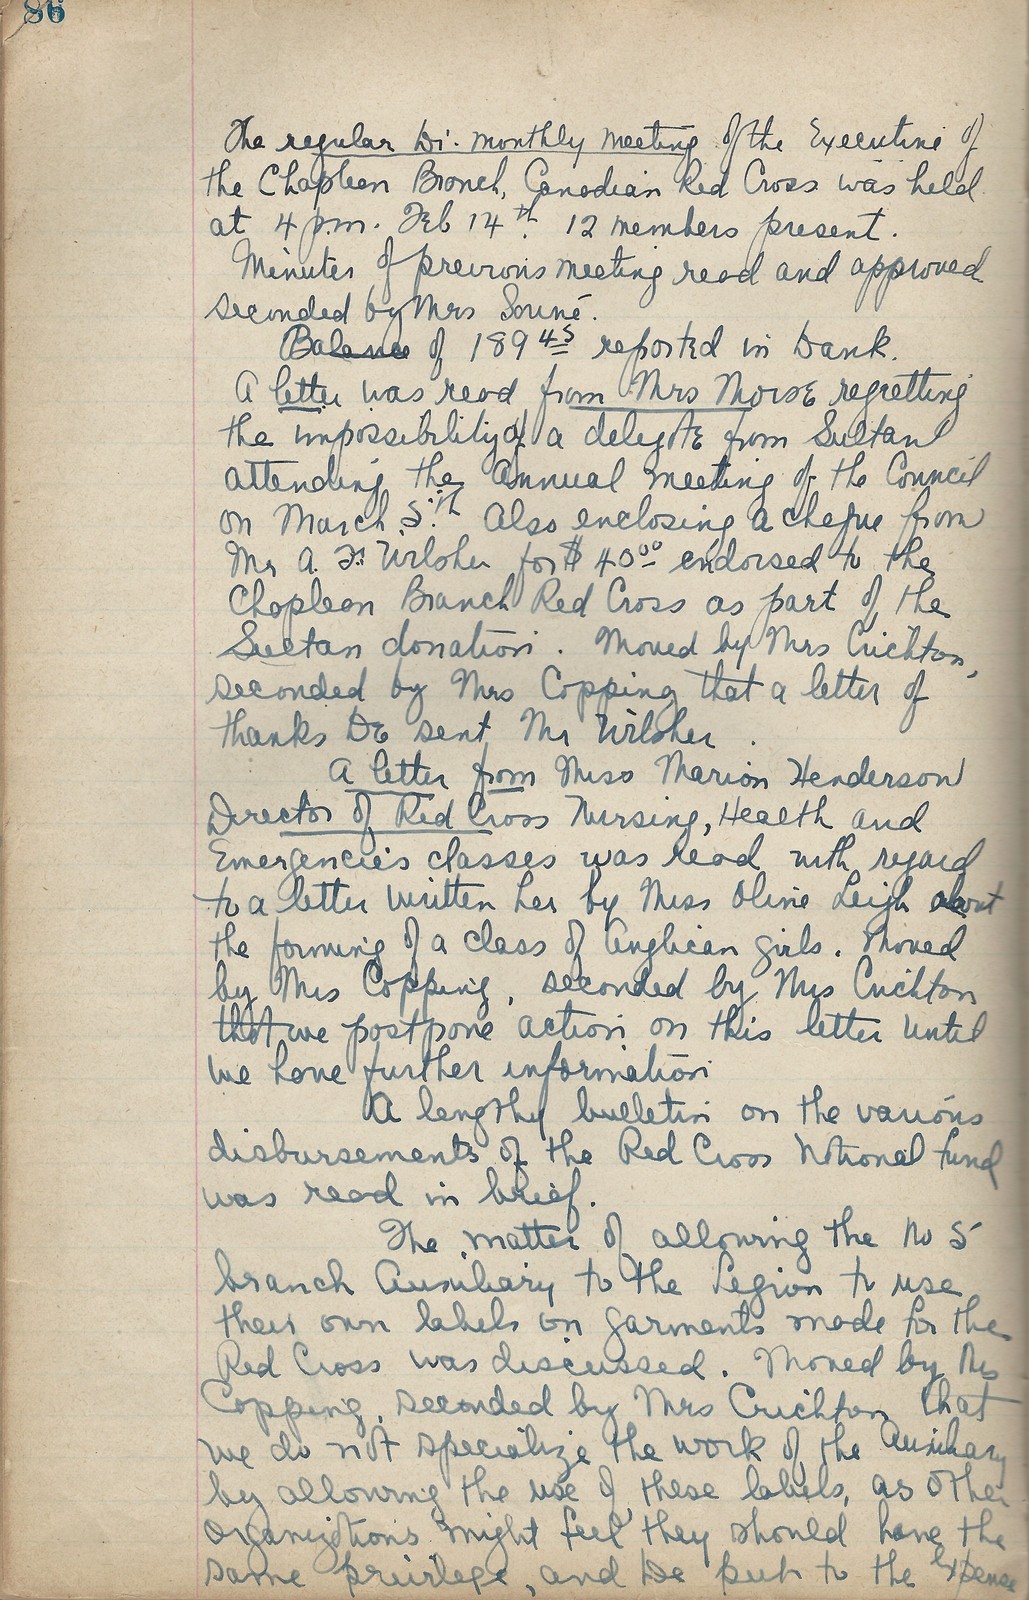 86
The regular Bi-monthly meeting of the Executive of
the Chapleau Branch, Canadian Red Cross was held
at 4 p.m. Feb 14th. 12 members present.
Minutes of previous meeting read and approved
seconded by Mrs
Balance of 189 45 reported in Bank.
A letter was read from Mrs Morse regretting
the impossibility of a delegate from Sultan
attending the Annual meeting of the Council
on March 5th. Also enclosing a cheque from
Mr A. for $ 40 00 endorsed to the
Chapleau Branch Red Cross as part of the
Sultan donation. Moved by Mrs Crichton,
seconded by Mrs Copping that a letter of
thanks be sent Mr
A letter from Miss Marion Henderson
Director of Red Cross Nursing, Health and
Emergencies classes was read with regard
to a letter written her by Miss Olive Leigh about
the forming of a class of Anglican girls. Moved
by Mrs Copping, seconded by Mrs Crichton
that we postpone action on this letter until
we have further information
A lengthy bulletin on the various
disbursements of the Red Cross National Fund
was read in brief.
The matter of allowing the No 5
branch Auxiliary to the Legion to use
their own labels on garments made for the
Red Cross was discussed. Moved by Mrs
Copping, seconded by Mrs Crichton that
we do not specialize the work of the Auxiliary
by allowing the use of these labels, as other
organizations might feel they should have the
same privilege, and be put to the expense